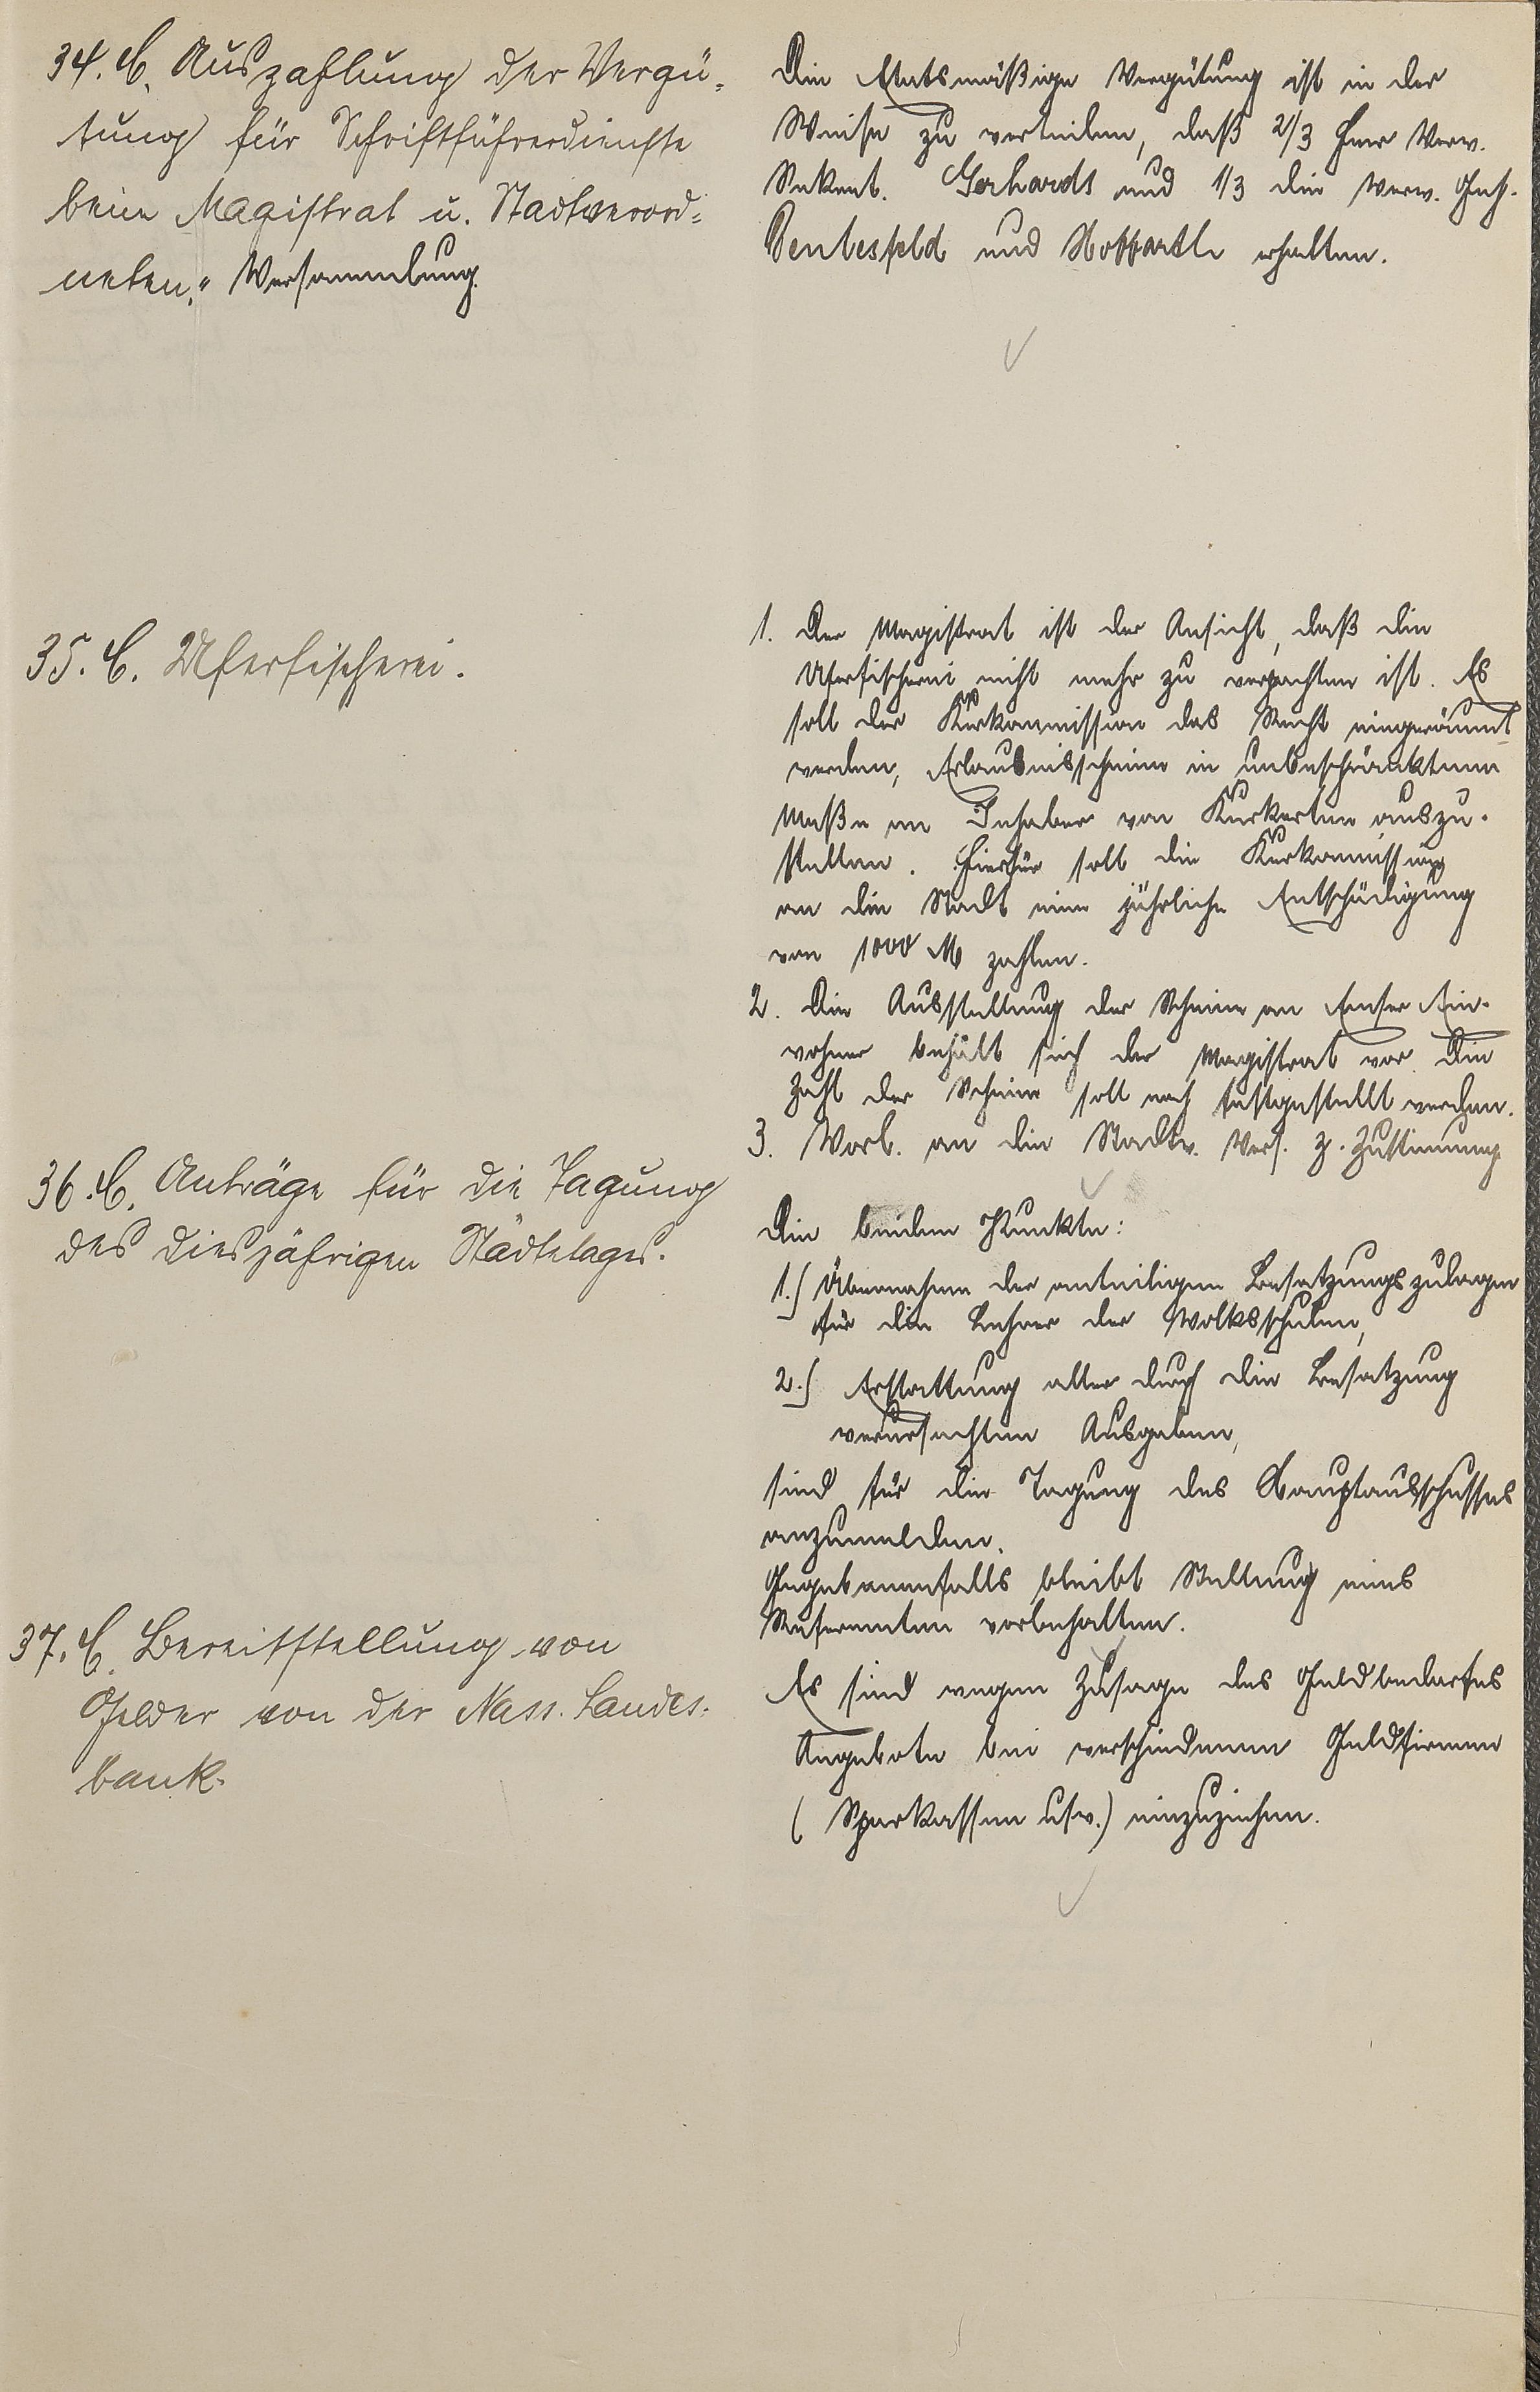 34. C. Auszahlung der Vergü-
tung für Schriftführerdienste
beim Magistrat u. Stadtverord-
neten-Versammlung.
Die Etatsmäßige Vergütung ist in der
Weise zu verteilen, daß 2/3 Herr Verw.
Sekret. Gerhards und 1/3 die Verw. Geh.
Dentesfeld und Hoffarth erhalten.
35. C. Uferfischerei.
1. Der Magistrat ist der Ansicht, daß die
Uferfischerei nicht mehr zu verpachten ist. Es
soll der Kurkommission das Recht eingeräumt
werden, Erlaubnisscheine in unbeschränktem
Maße an Inhaber von Kurkarten auszu-
stellen. Hierfür soll die Kurkommission
an die Stadt eine jährliche Entschädigung
von 1000 M zahlen.
2. Die Ausstellung der Scheine an Emser Ein-
wohner behält sich der Magistrat vor. Die
Zahl der Scheine soll noch festgestellt werden.
3. Vorl. an die Stadtv. Vers. z. Zustimmung
36. C. Anträge für die Tagung
des diesjährigen Städtetages.
Die beiden Punkte:
1.) Übernahme der anteiligen Besatzungszulagen
für die Lehrer der Volksschulen,
2.) Erstattung aller durch die Besatzung
verursachten Ausgaben,
sind für die Tagung des Hauptausschusses
anzumelden.
Gegebenenfalls bleibt Stellung eines
Referenten vorbehalten.
37. C. Bereitstellung von
Gelder von der Nass. Landes-
bank.
Es sind wegen Zusage des Geldbedarfes
Angebote bei verschiedenen Geldfirmen
(Sparkassen usw.) einzuziehen.